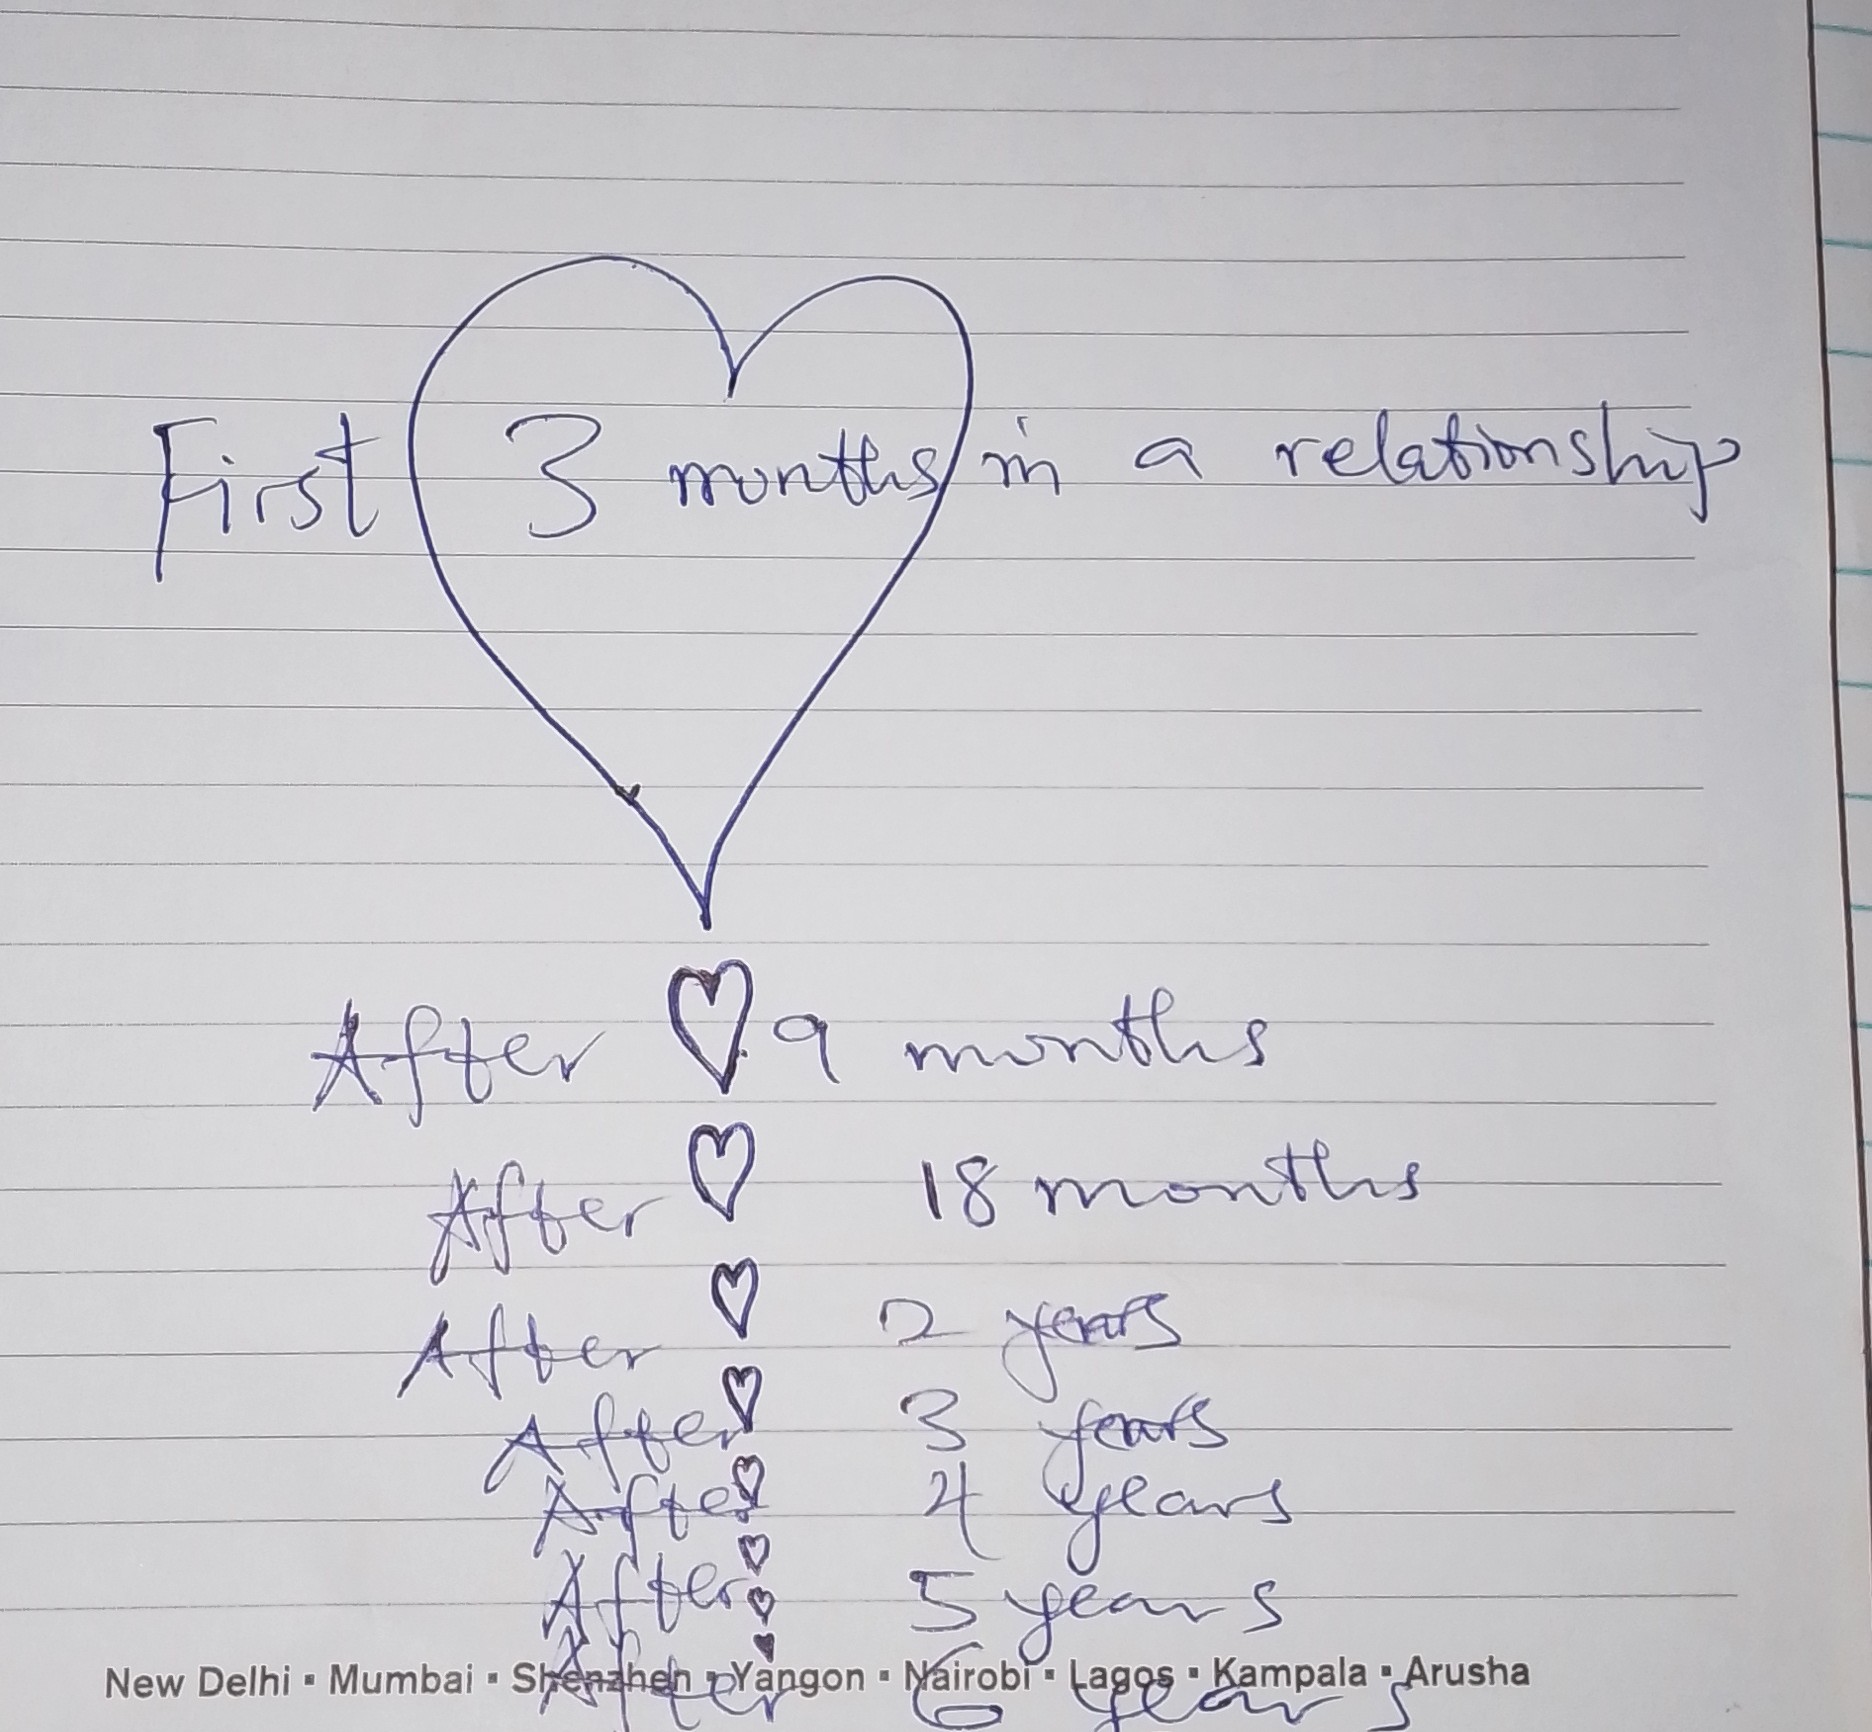 First 3 months in a relationship
After 9 months
After 18 months
After 2 years
After 3 years
After 4 years
After 5 years
New Delhi ▪ Mumbai ▪ Shenzhen ▪ Yangon ▪ Nairobi ▪ Lagos ▪ Kampala ▪ Arusha
After 6 years